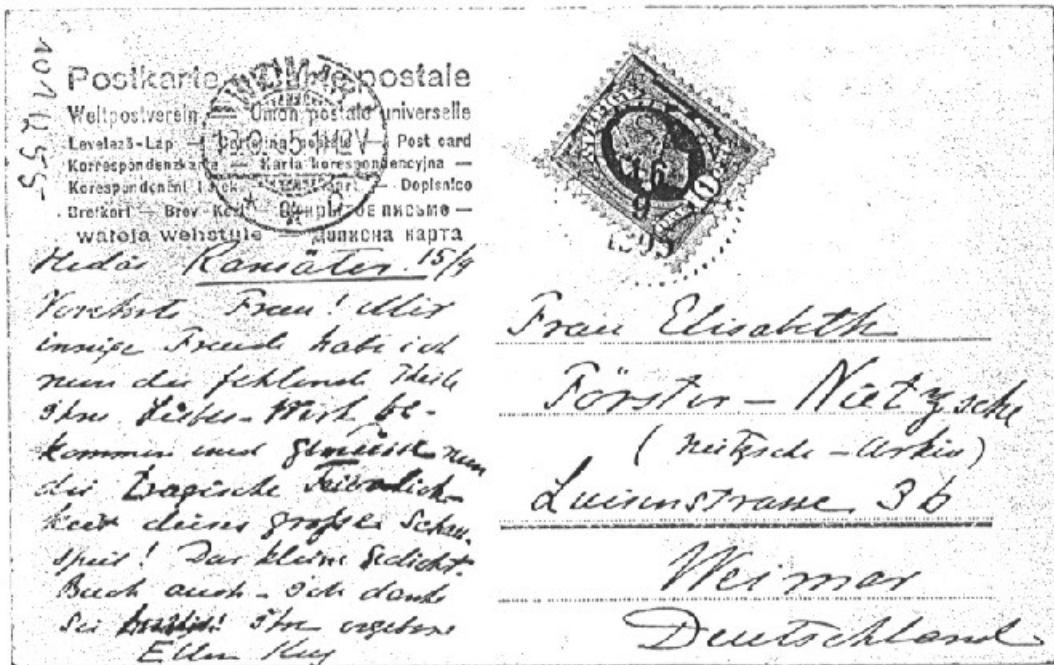 Postkarte — Carte postale
Weltpostverein — Union postale universelle
Levelező-Lap — postale — Post card
Korrespondenzkarte — Karta korespondencyjna —
Korespondenční — Dopisnice
Brefkort — Brev-Kort — Открытое письмо —
— Дописна карта
16
9
Ransäter 15/9
Verehrte Frau! Mit
innige Freude habe ich
nun die fehlende Theile
Ihre Liebes-Werk be-
kommen und nun
die tragische Feierlich-
keit dieses großes Schau-
spiel! Das kleine Gedicht-
Buch auch. Ich danke
Sie Ihre ergebene
Ellen Key
Frau Elisabeth
Förster-Nietzsche
(Nietzsche-Arkiv)
Luisenstrasse 36
Weimar
Deutschland